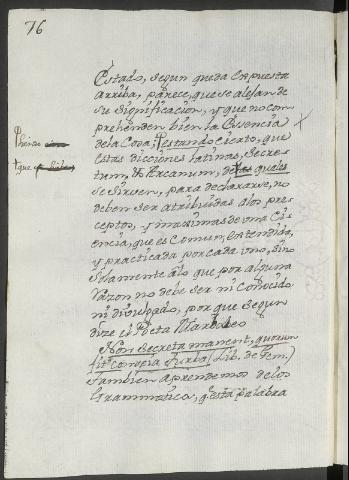 76
Estado, segun queda expuesta
arriba, parece, que se alejan de
su significacion, y que no com
prehenden bien la Essencia
de la Cosa, estando cierto, que
estas dicciones latinas, Secre-
tum, & Arcanum, de las quales
se sirven, para declararse, no
deben ser atribuidas a los pre-
ceptos, y maximas de una Ci-
encia, que es comun, entendida,
y practicada por cada uno, sino
solamente a lo que por alguna
razon no debe ser ni conocido
ni divulgado, por que segun
dize el Poeta
Non Secreta manent, quorum
fit conscia turba (Lib. de Pem.)
tambien aprendemos de los
Grammaticos, q esta palabra
† que